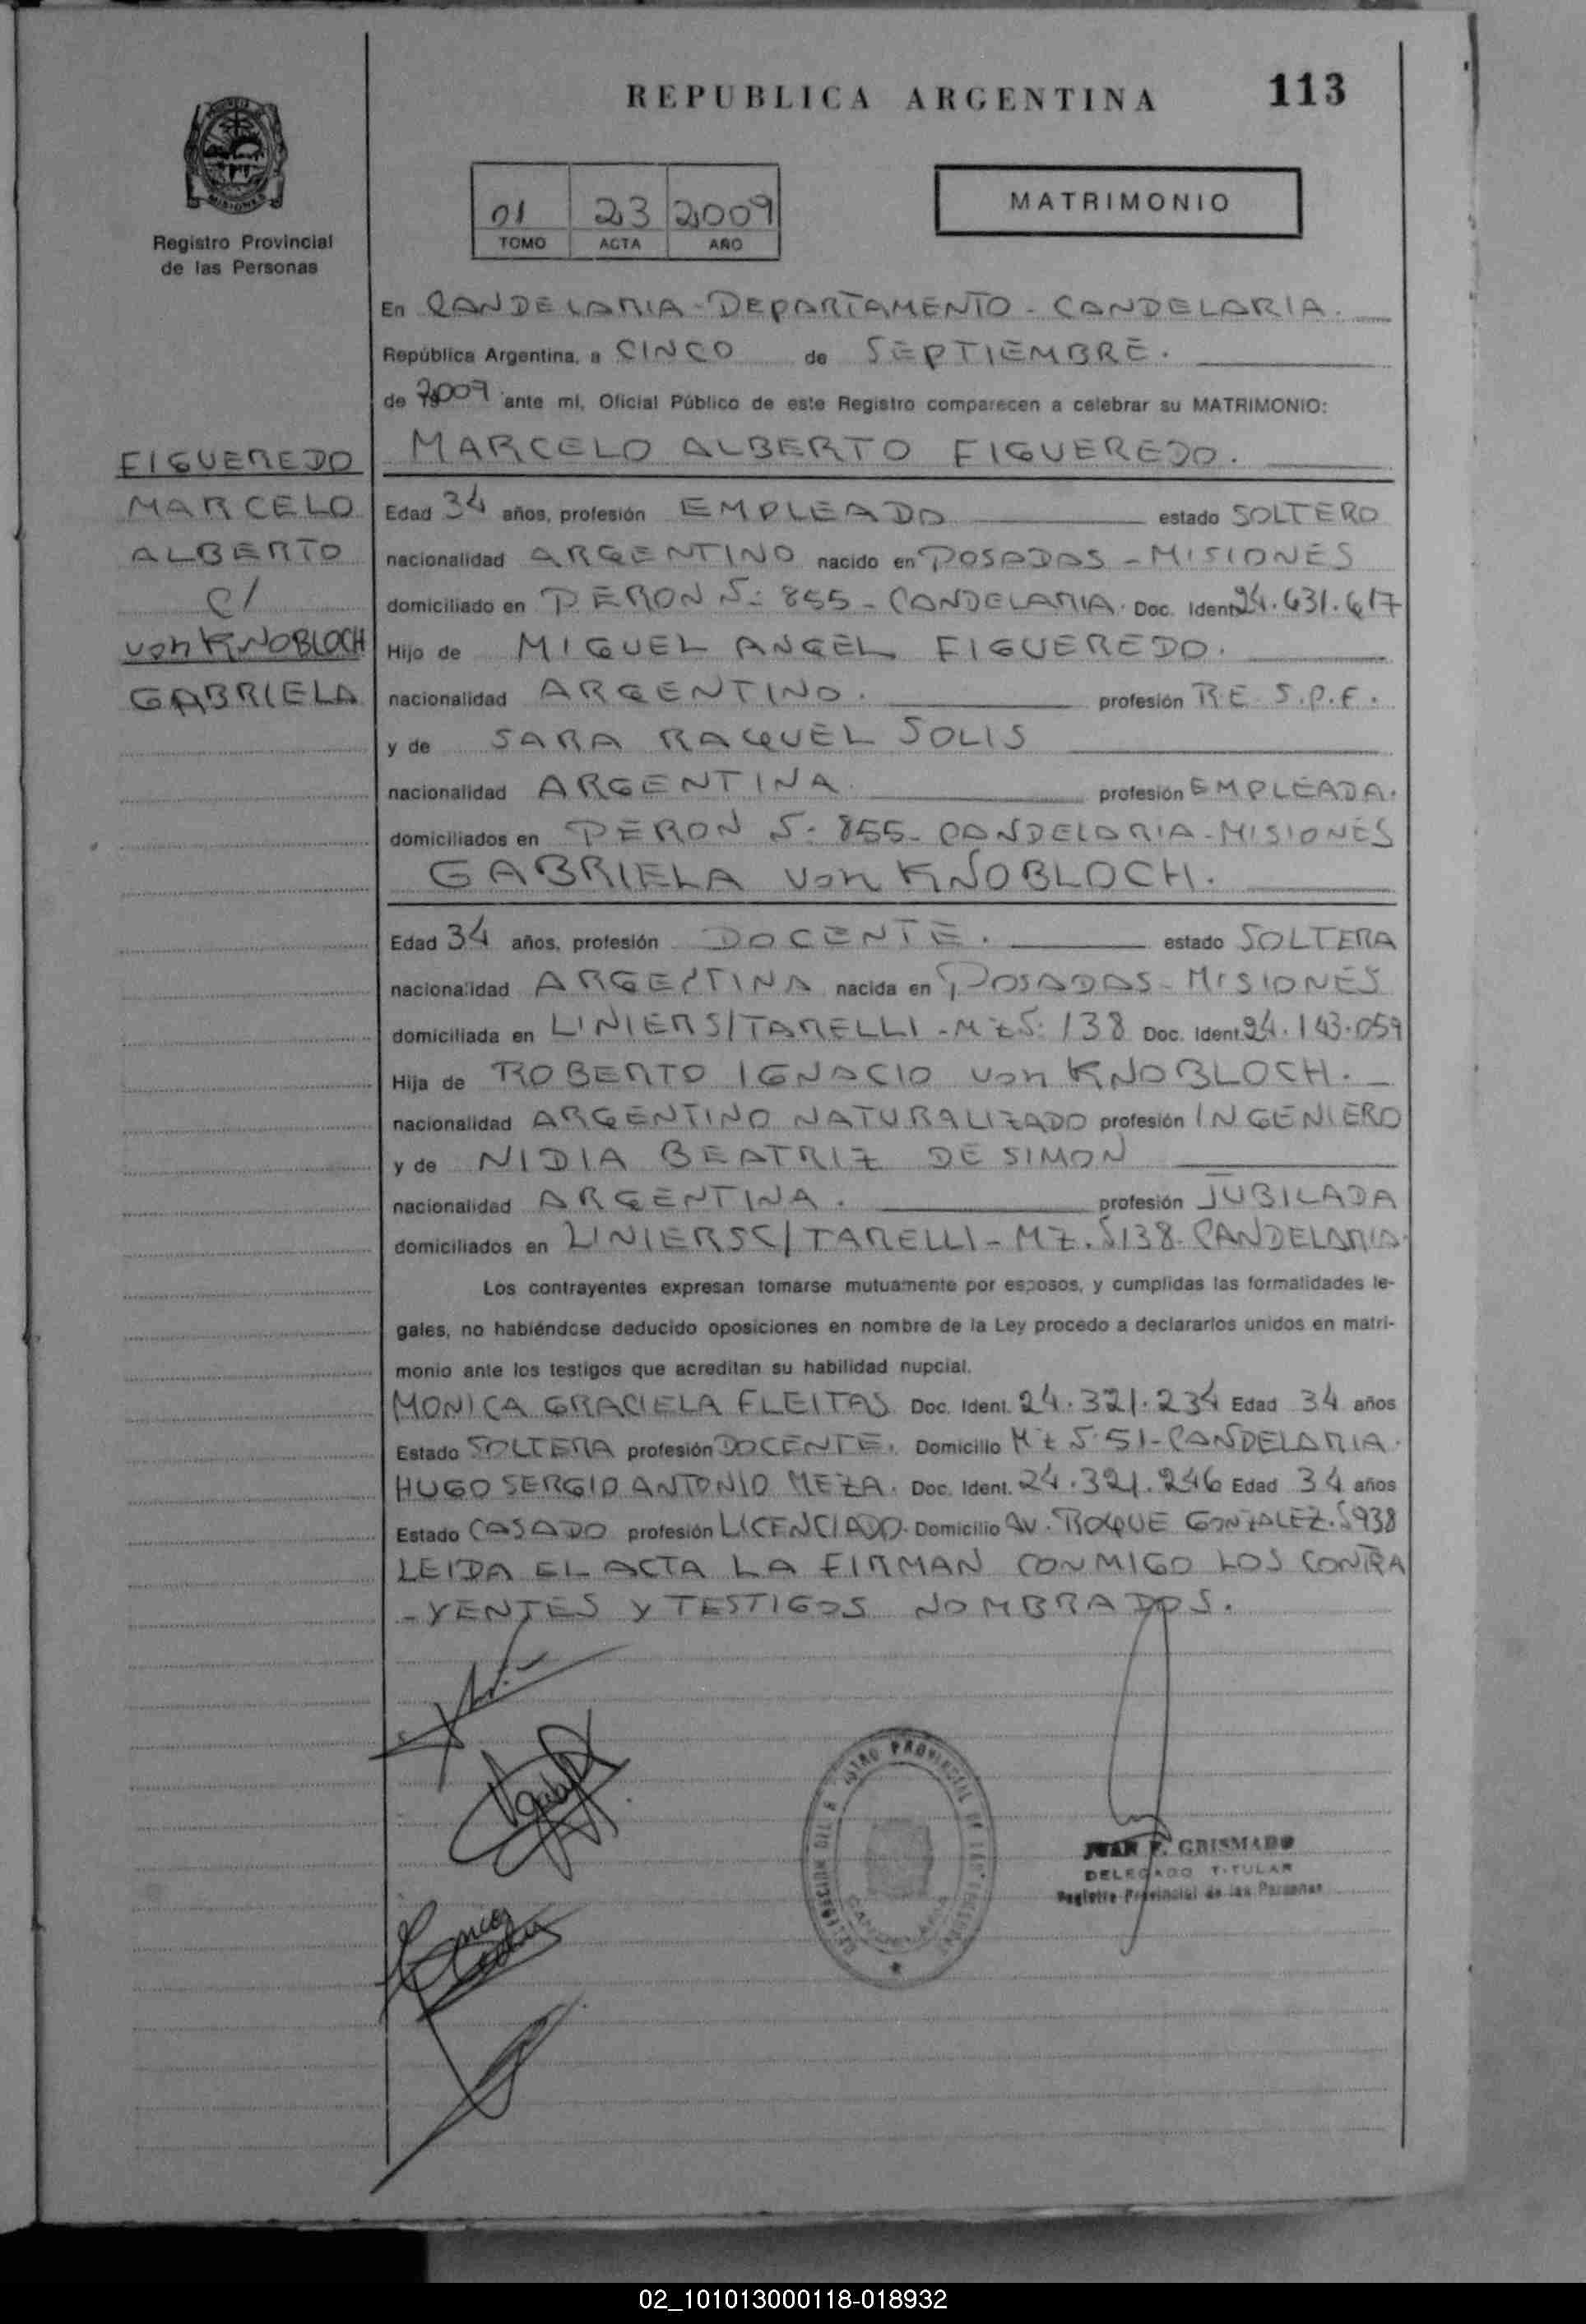 REPUBLICA ARGENTINA
113
01 23 2009
TOMO ACTA AÑO
MATRIMONIO
MISIONES
Registro Provincial
de las Personas
En CANDELARIA - DEPARTAMENTO - CANDELARIA.
República Argentina, a CINCO de SEPTIEMBRE.
de 2009 ante mí, Oficial Público de este Registro comparecen a celebrar su MATRIMONIO:
MARCELO ALBERTO FIGUEREDO.
FIGUEREDO
MARCELO
ALBERTO
C/
von KNOBLOCH
GABRIELA
Edad 34 años, profesión EMPLEADO estado SOLTERO
nacionalidad ARGENTINO nacido en POSADAS - MISIONES
domiciliado en PERON S: 855 - CANDELARIA. Doc. Ident. 24.631.617
Hijo de MIGUEL ANGEL FIGUEREDO.
nacionalidad ARGENTINO. profesión RE S.P.F.
y de SARA RAQUEL SOLIS
nacionalidad ARGENTINA. profesión EMPLEADA.
domiciliados en PERON S: 855 - CANDELARIA - MISIONES
GABRIELA von KNOBLOCH.
Edad 34 años, profesión DOCENTE. estado SOLTERA
nacionalidad ARGENTINA nacida en POSADAS - MISIONES
domiciliada en LINIERS/TARELLI - Mz S: 138 Doc. Ident. 24.143.059
Hija de ROBERTO IGNACIO von KNOBLOCH.
nacionalidad ARGENTINO NATURALIZADO profesión INGENIERO
y de NIDIA BEATRIZ DE SIMON
nacionalidad ARGENTINA. profesión JUBILADA
domiciliados en LINIERS C/TARELLI - MZ. S138 - CANDELARIA.
Los contrayentes expresan tomarse mutuamente por esposos, y cumplidas las formalidades le-
gales, no habiéndose deducido oposiciones en nombre de la Ley procedo a declararlos unidos en matri-
monio ante los testigos que acreditan su habilidad nupcial.
MONICA GRACIELA FLEITAS Doc. Ident. 24.321.234 Edad 34 años
Estado SOLTERA profesión DOCENTE. Domicilio Mz S: 51 - CANDELARIA.
HUGO SERGIO ANTONIO MEZA. Doc. Ident. 24.321.246 Edad 34 años
Estado CASADO profesión LICENCIADO. Domicilio AV. ROQUE GONZALEZ. S938
LEIDA EL ACTA LA FIRMAN CONMIGO LOS CONTRA
-YENTES Y TESTIGOS NOMBRADOS.
JUAN F. GRISMADO
DELEGADO TITULAR
Registro Provincial de las Personas
02_101013000118-018932